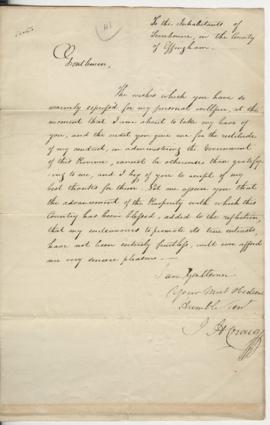 To the Inhabitants of
Terrebonne, in the County
of Effingham.
Gentlemen,
The wishes which you have so
warmly expressed for my personal welfare, at the
moment that I am about to take my leave of
you, and the credit you give me for the rectitude
of my conduct, in administering the Government
of this Province, cannot be otherwise than gratify-
ing to me, and I beg of you to accept of my
best thanks for them. Let me assure you that
the advancement of the Prosperity with which this
Country has been blessed, added to the reflection,
that my endeavours to promote its true interests,
have not been entirely fruitless, will ever afford
me very sincere pleasure.—
I am Gentlemen
Your Most Obedient
Humble Servt
J H Craig